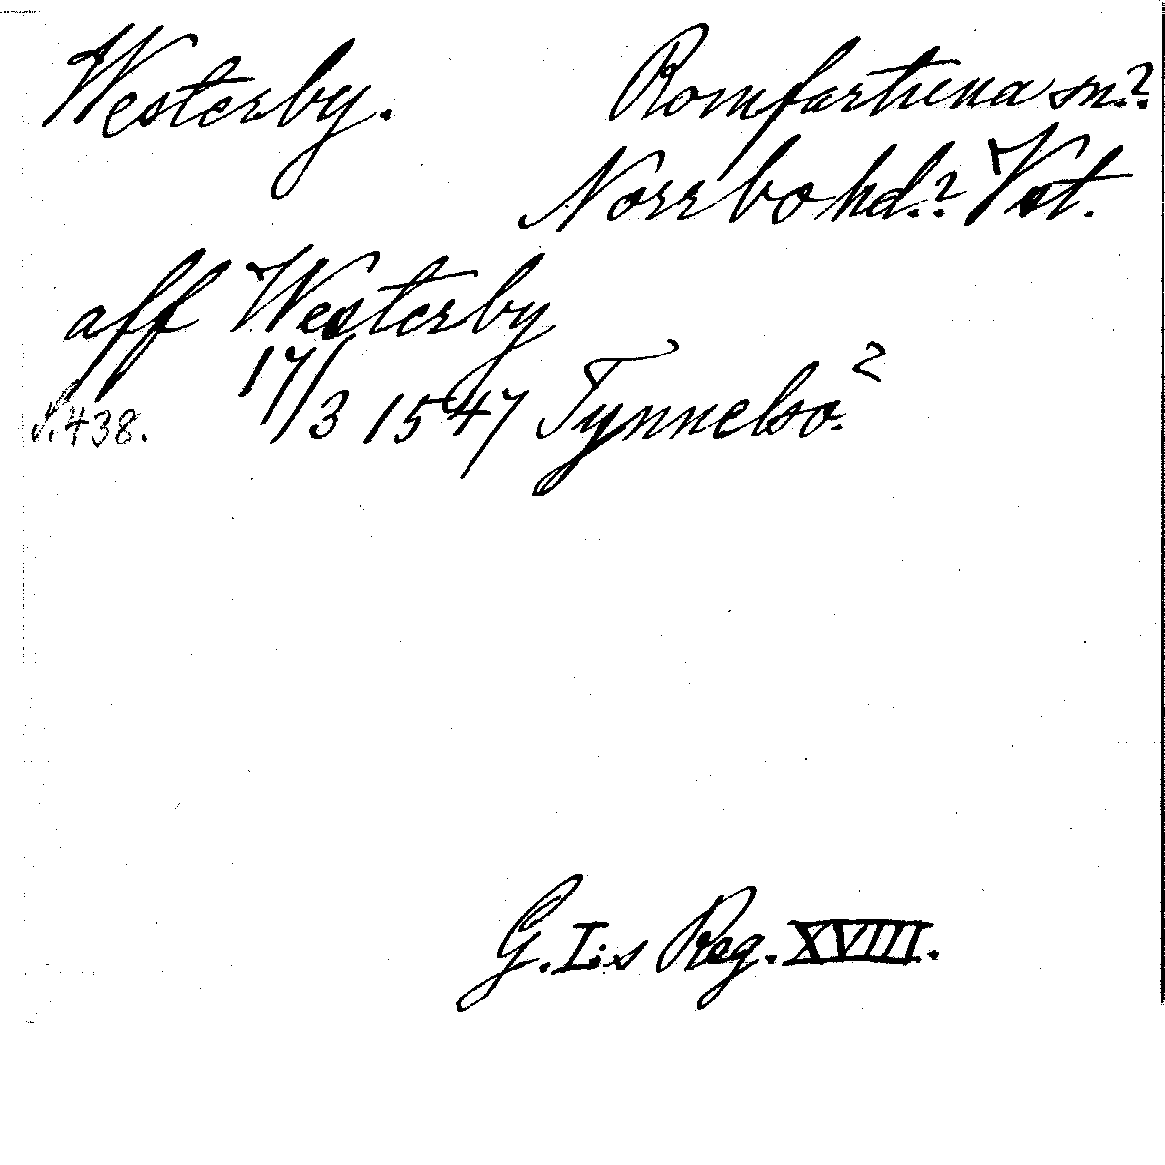 Westerby. Romfartuna sn.?
Norrbo hd.? Vst.
aff Westerby
s. 438. 17/3 1547 Tynnelso.?
G. I:s Reg. XVIII.